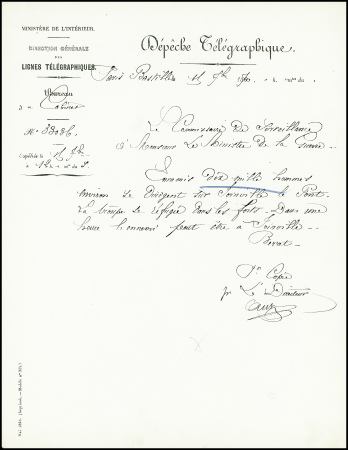 MINISTÈRE DE L'INTÉRIEUR.
DIRECTION GÉNÉRALE
DES
LIGNES TÉLÉGRAPHIQUES.
Bureau
du Cabinet
N° 33036.
Expédiée le 15 7bre
à 12h m du S
Dépêche Télégraphique.
Paris Bastille 15 7bre 1870
Le Commissaire de Surveillance
à Monsieur le Ministre de la Guerre
Ennemis dix mille hommes
environ se dirigent sur Joinville le Pont.
La troupe se réfugie dans les forts. Dans une
heure l'ennemi peut être à Joinville.
Pr Copie
pr Le Directeur